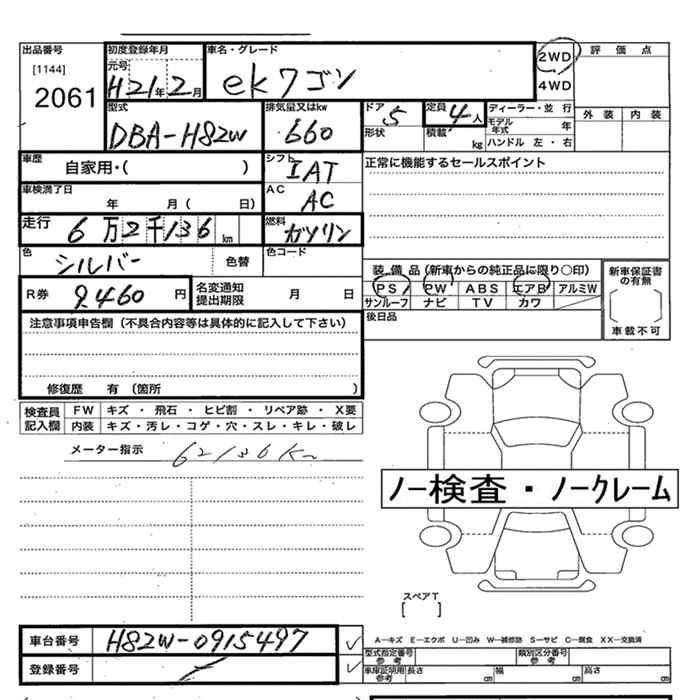 出品番号 初度登録年月 車名・グレード 2WD 評価点
[1144] 元号 4WD
2061 H21年2月 ekワゴン
型式 排気量又はkw ドア 定員 ディーラー・並行 外装 内装
DBA-H82W 660 5 4人 モデル年式 年
形状 積載 kg ハンドル 左・右
車歴 自家用・( ) シフト IAT 正常に機能するセールスポイント
車検満了日 年 月( 日) AC AC
走行 6万2千136km 燃料 ガソリン
色 シルバー 色替 色コード
装備品(新車からの純正品に限り○印) 新車保証書の有無
R券 9,460円 名変通知提出期限 月 日 PS PW ABS エアB アルミW
サンルーフ ナビ TV カワ
注意事項申告欄(不具合内容等は具体的に記入して下さい) 後日品 車載不可
修復歴 有(箇所 )
検査員記入欄 FW キズ・飛石・ヒビ割・リペア跡・X要
内装 キズ・汚レ・コゲ・穴・スレ・キレ・破レ
メーター指示 62136Km
ノー検査・ノークレーム
スペアT
[ ]
車台番号 H82W-0915497 A－キズ E－エクボ U－凹み W－補修跡 S－サビ C－腐食 XX－交換済
型式指定番号 参考 類別区分番号 参考
登録番号 車庫証明用参考 長さ cm 幅 cm 高さ cm